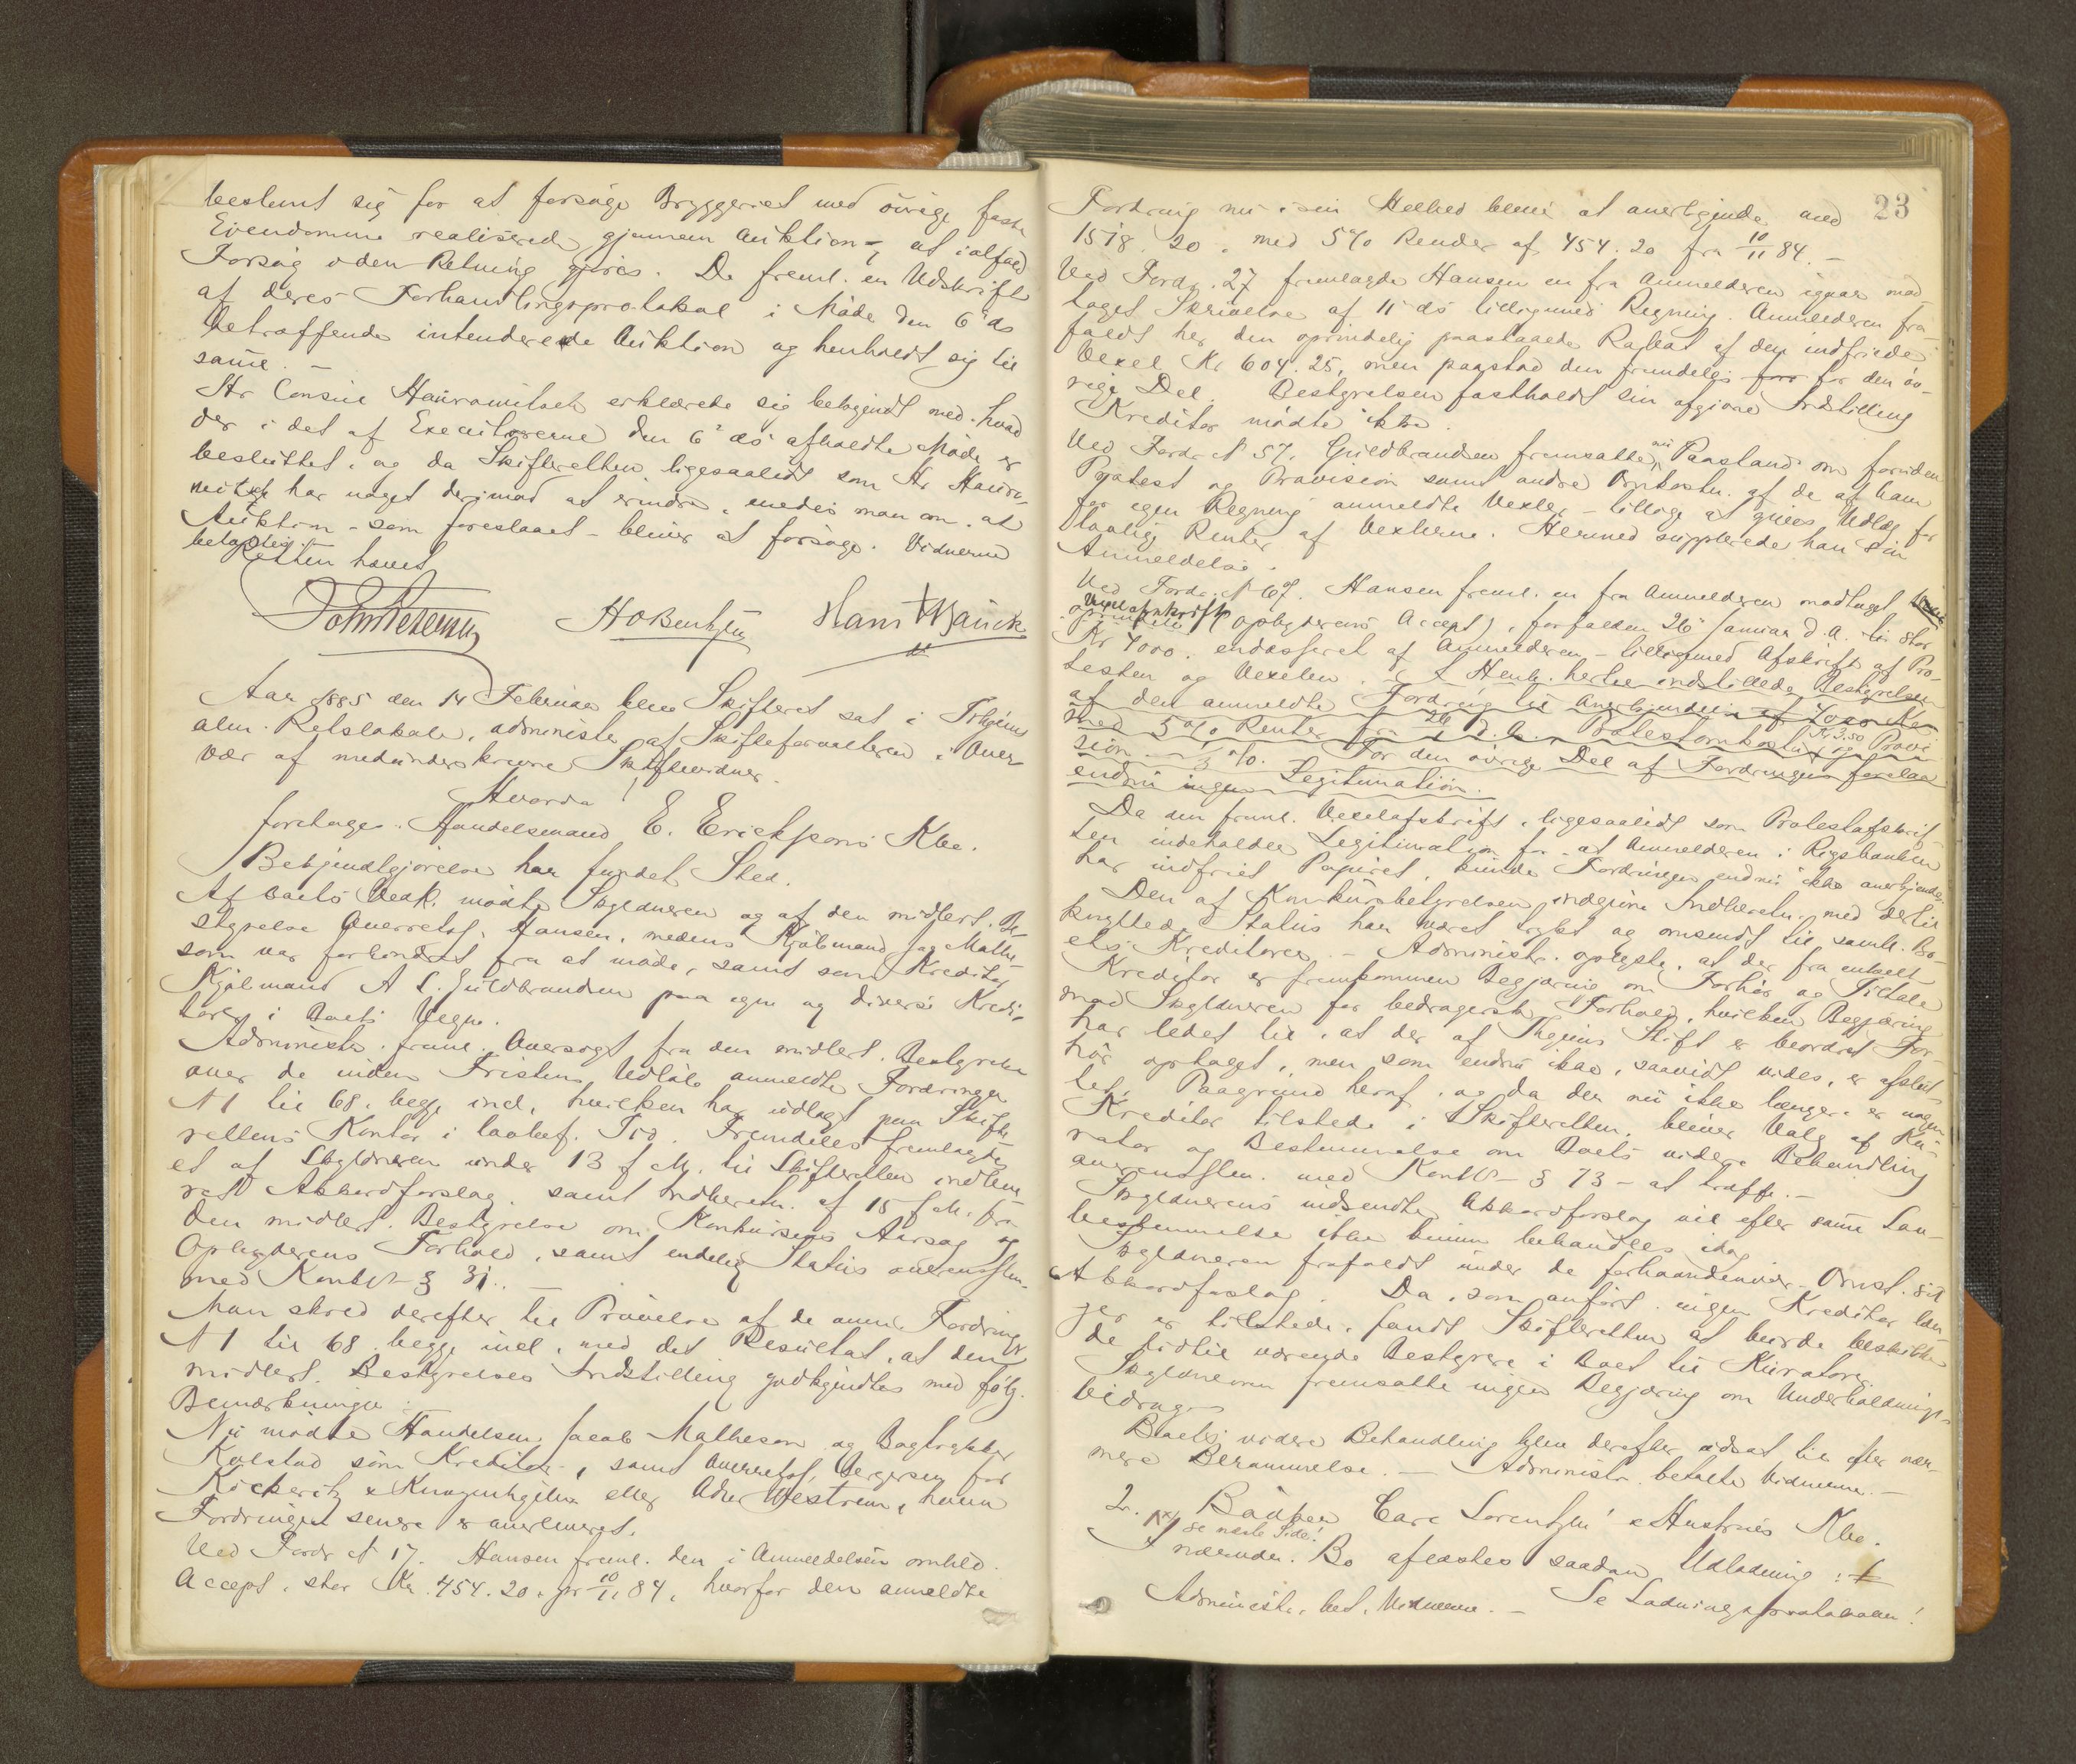 bestemt sig for at forsøge Bryggeriet med øvrige faste
Eiendomme realiseret gjennem Auktion, at ialfald
Forsøg i den Retning gjøres. De freml. en Udskrift
af deres Forhandlingsprotokol i Møde den 6' ds
betræffende intenderede Auktion og henholdt sig til
samme. –
Hr Consul Hauromitsch erklærede sig bekjendt med hvad
der i det af Executorerne den 6' ds afholdte Møde er
besluttet, og da Skifteretten ligesaalidt som Hr Hauro-
mitsch har noget derimod at erindre, enedes man om, at
Auktion – som foreslaaet – bliver at forsøge. Vidnerne
betaltes.
Retten hævet
HOBentzen Hans Bauck
Aar 1885 den 14 Februar blev Skifteret sat i Thjems
alm. Retslokale, administr. af Skifteforvalteren i Over-
vær af medunderskrevne Skiftevidner.
Hvorda
foretoges. Handelsmand E. Ericksons Kbo.
Bekjendtgjørelse har fundet Sted.
Af Boets Vedk. mødte Skyldneren og af den midlert. Be-
styrelse Overretssf. Hansen, medens Kjøbmand Jac Mathe-
son var forhindret fra at møde, samt som Kreditor
Kjøbmand A L. Guldbrandsen paa egne og diverse Kredi-
torer i Boets Vegne.
Administr. freml. Oversigt fra den midlert. Bestyrelse
over de inden Fristens Udløb anmeldte Fordringer
N 1 til 68, begge incl., hvilken har udlagt paa Skifte
rettens Kontor i lovbef. Tid. Fremdeles fremlagdes
et af Skyldneren under 13 f. M. til Skifteretten indleve
ret Akkordforslag, samt Indberetn. af 15 f. M. fra
den midlert. Bestyrelse om Konkursens Aarsag og
Opbyderens Forhold, samt endelig Status overensstem.
med Konksl § 31. –
Man skred derefter til Prøvelse af de anm. Fordringer
N 1 til 68 begge incl., med det Resultat, at den
midlert. Bestyrelses Indstilling godkjendtes med følg.
Bemærkninger:
Nu mødte Handelsm. Jacob Matheson og Bogtrykker
Kolstad som Kreditor, samt Overretssf. Jergersen for
Køckeritz & eller Adv Westrum, hvem
Fordringen senere er overleveret.
Ved Fordr № 17. Hansen freml. den i Anmeldelsen omhdl.
Accept, stor Kr. 454.20, pr 10/11 84, hvorfor den anmeldte
23
Fordring nu i sin Helhed bliver at anerkjende med
1578.20. med 5% Renter af 454.20 fra 10/11 84. –
Ved Fordr. 27 fremlagde Hansen en fra Anmelderen igaar mod-
taget Skrivelse af 11' ds tilligemed Regning. Anmelderen fra-
faldt her den oprindelig paastaaede Rafbat af den indfriede
Vexel Kr 604.25, men paastod den fremdeles for for den øv-
rige Del. Bestyrelsen fastholdt sin afgivne Indstilling
Kreditor mødte ikke.
Ved Fordr № 57, Guldbrandsen fremsatte nu Paastand om foruden
Protest og Provision samt andre Omkostn. af de af ham
for egen Regning anmeldte Vexler – tillige at gives Udlæg for
lovlig Renter af Vexlerne. Hermed supplerede han sin
Anmeldelse.
Ved Fordr. № 67. Hansen freml. en fra Anmelderen modtaget
Vexelafskrift (opbyderens Accept), forfalden 26' Januar d. A. til stor
Kr 7000, endosseret af Anmelderen – tilligemed Afskrift af Pro-
testen og Vexelen. I Henh. hertil indstillede Bestyrelsen
af den anmeldte Fordring til Anerkjendelse af 7000 Kr
med 5% Renter fra 26/1 d. A., Protestomkostn. Kr 3.50 og Provi
sion – 1/3 %. For den øvrige Del af Fordringen forelaa
endnu ingen Legitimation.
Da den freml. Vexelafskrift, ligesaalidt som Protestafskrif-
ten indeholder Legitimation for at Anmelderen i Rigsbanken
har indfriet Papiret, kunde Fordringen endnu ikke anerkjendes.
Den af Konkursbestyrelsen indgivne Indberetn. med dertil
knyttede Status har været trykt og omsendt til samtl. Bo-
ets Kreditorer. – Administr. oplyste, at der fra enkelt
Kreditor er fremkommen Begjæring om Forhør og Tiltale
mod Skyldneren for bedragersk Forhold, hvilken Begjæring
har ledet til, at der af Thjems Stift er beordret For-
hør optaget, men som endnu ikke, saavidt vides, er afslut-
tet. Paagrund heraf, og da der nu ikke længere er nogen
Kreditor tilstede i Skifteretten, bliver Valg af Ku-
rator og Bestemmelse om Boets videre Behandling
overensstem. med Konksl § 73 – at træffe. –
Skyldnerens indsendte Akkordforslag vil efter samme Lov-
bestemmelse ikke kunne behandles idag
Skyldneren frafaldt under de forhaandenvær. Omst. sit
Akkordforslag. Da, som anført, ingen Kreditor læn-
ger er tilstede, fandt Skifteretten at burde beskikke
de hidtil værende Bestyrere i Boet til Kuratorer.
Skyldneren fremsatte ingen Begjæring om Underholdnings-
bidrag.
Boets videre Behandling blev derefter udsat til efter nær-
mere Berammelse. – Administr. betalte Vidnerne. –
2. Baaker Carl Lorentzen & Hustrues Kbo.
se næste Side!
I nævnte Bo aflæstes saadan Udladning:
Administr. bet. Vidnerne. – Se Ladningsprotokollen!